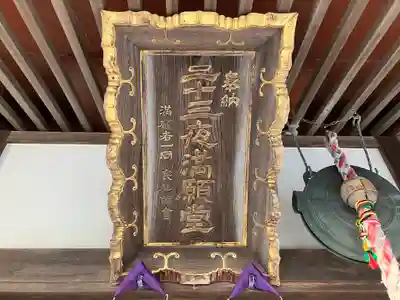 奉納
二十三夜満願堂
満願者一同